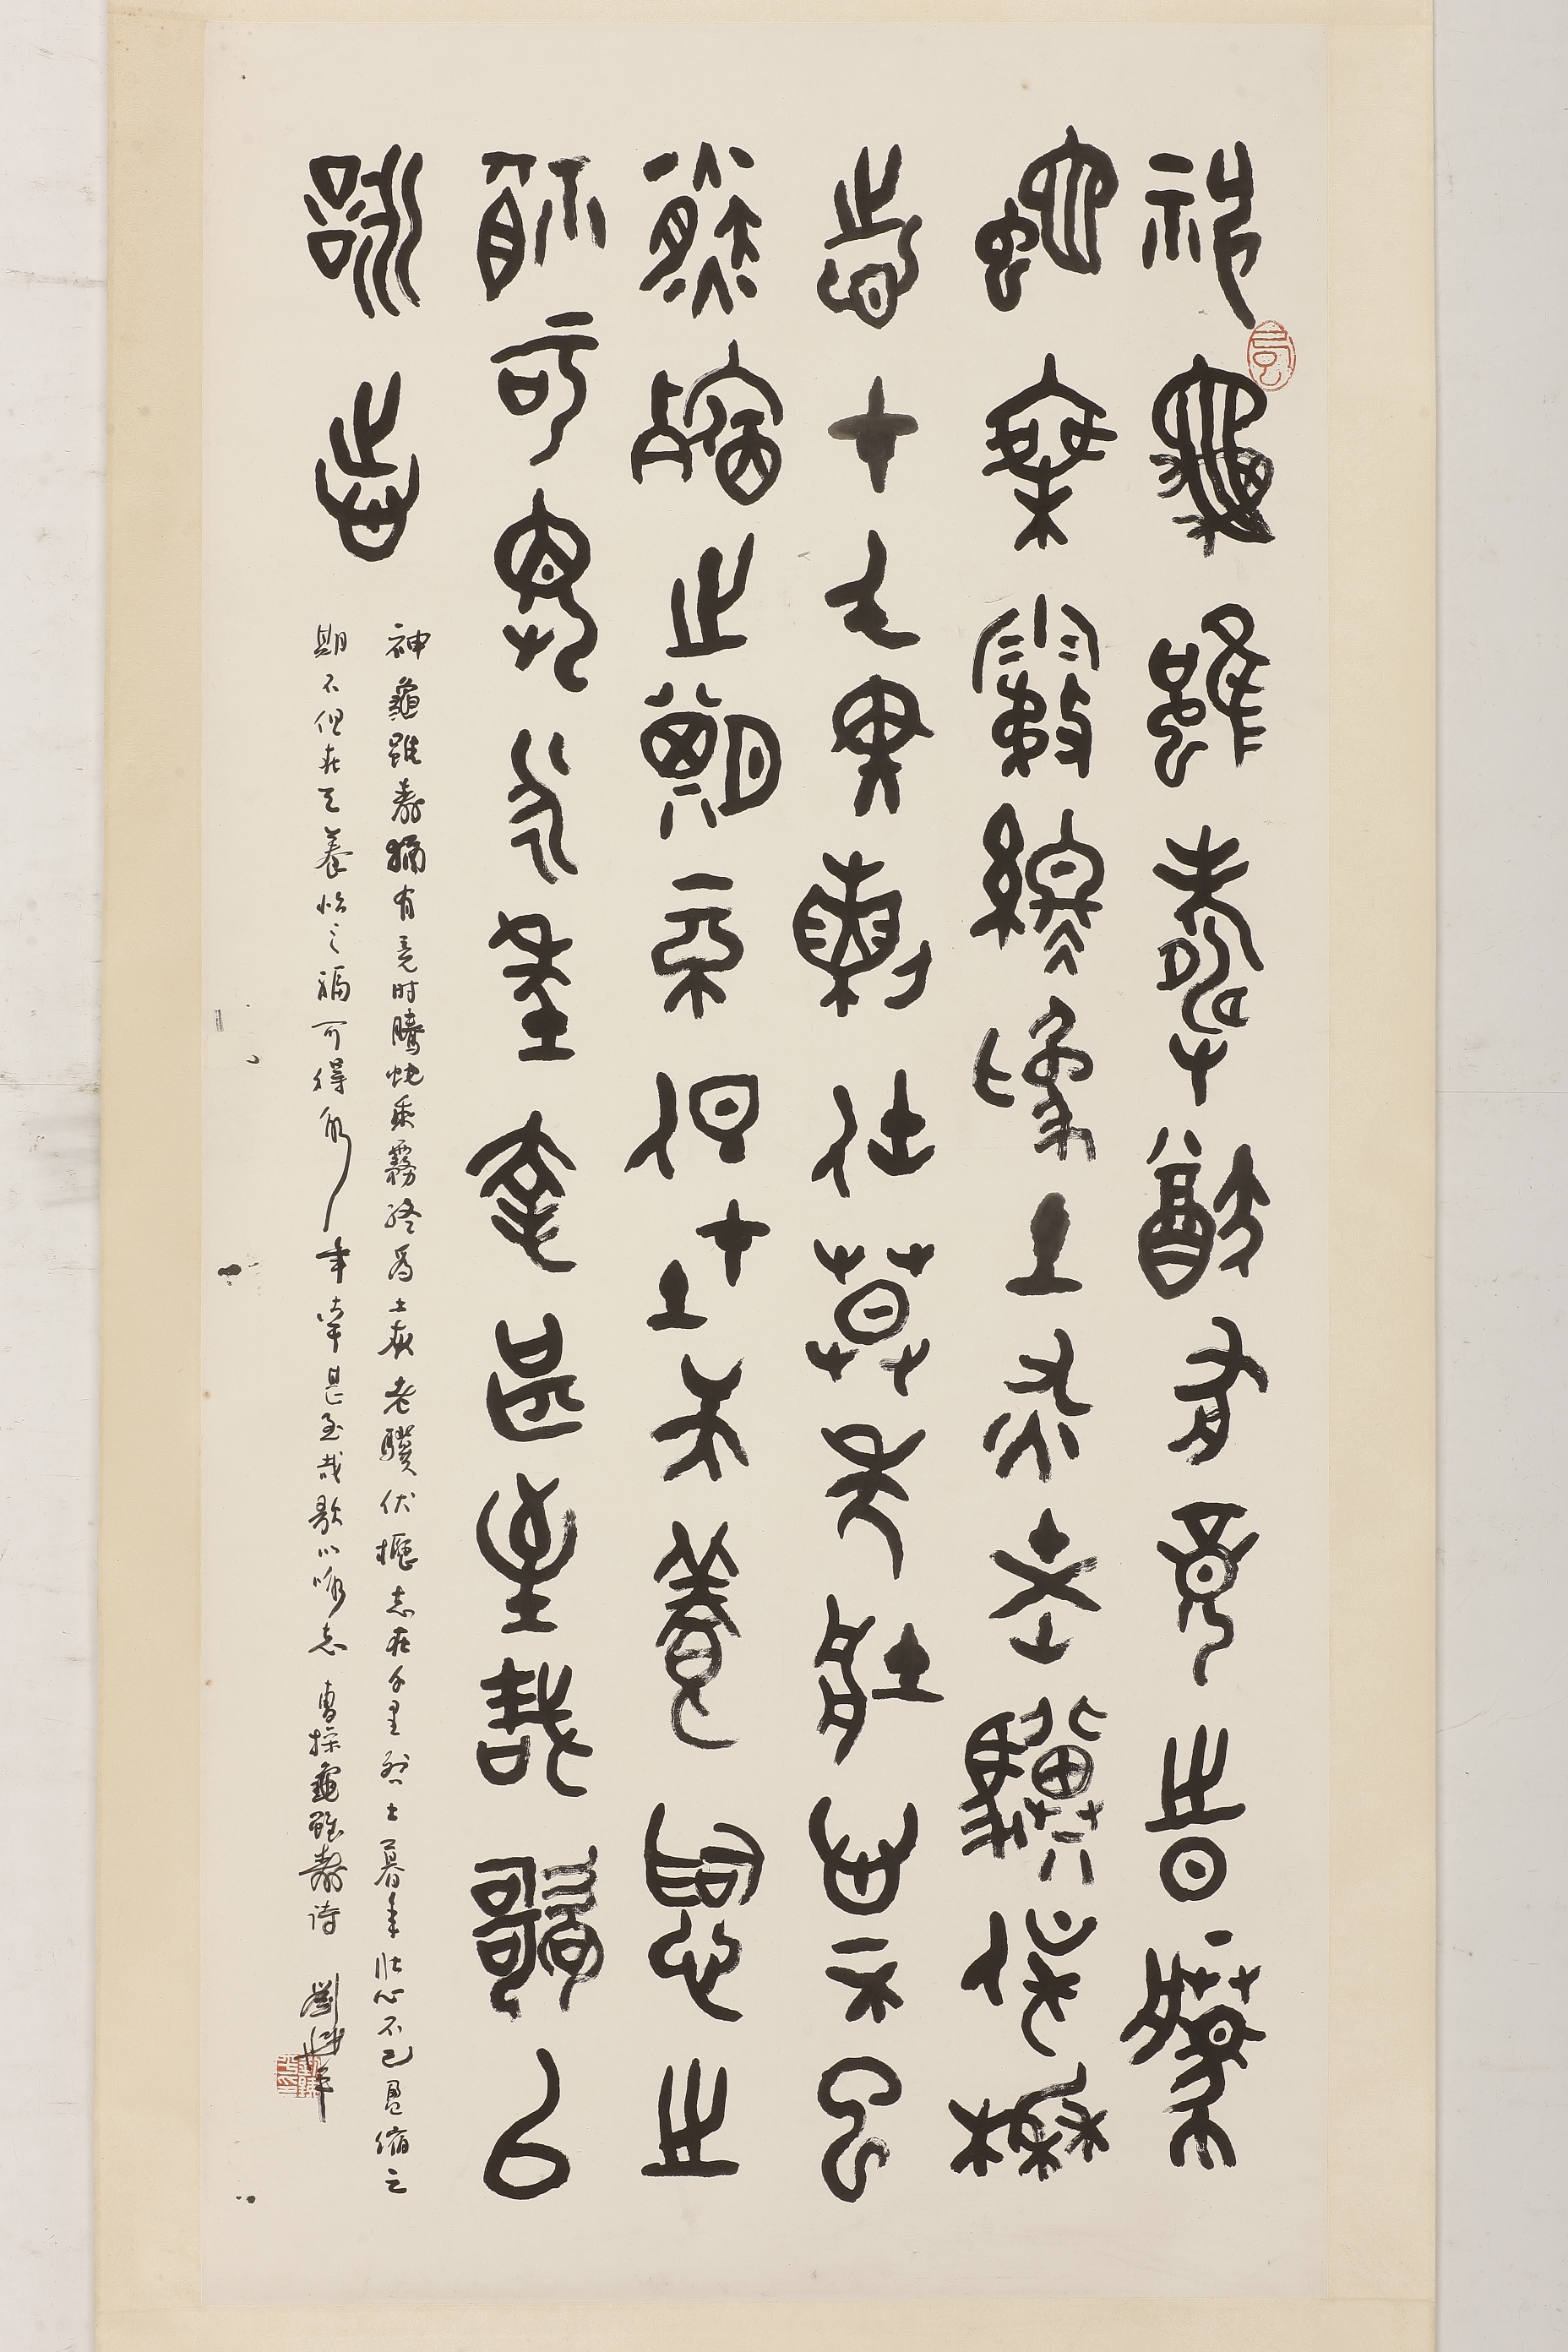 神龜雖壽猷有竟時騰
蛇乘霧終為土灰老驥伏櫪
志在千里烈士莫年壯心不已
盈縮之期不但在天養怡之
福可得永年幸甚至哉歌以
詠志
神龜雖壽猶有竟时騰蛇乘霧終為土灰老驥伏櫪志在千里烈士暮年壯心不已盈縮之
期不但在天養怡之福可得永年幸甚至哉歌以詠志 曹操龜雖壽诗 劉